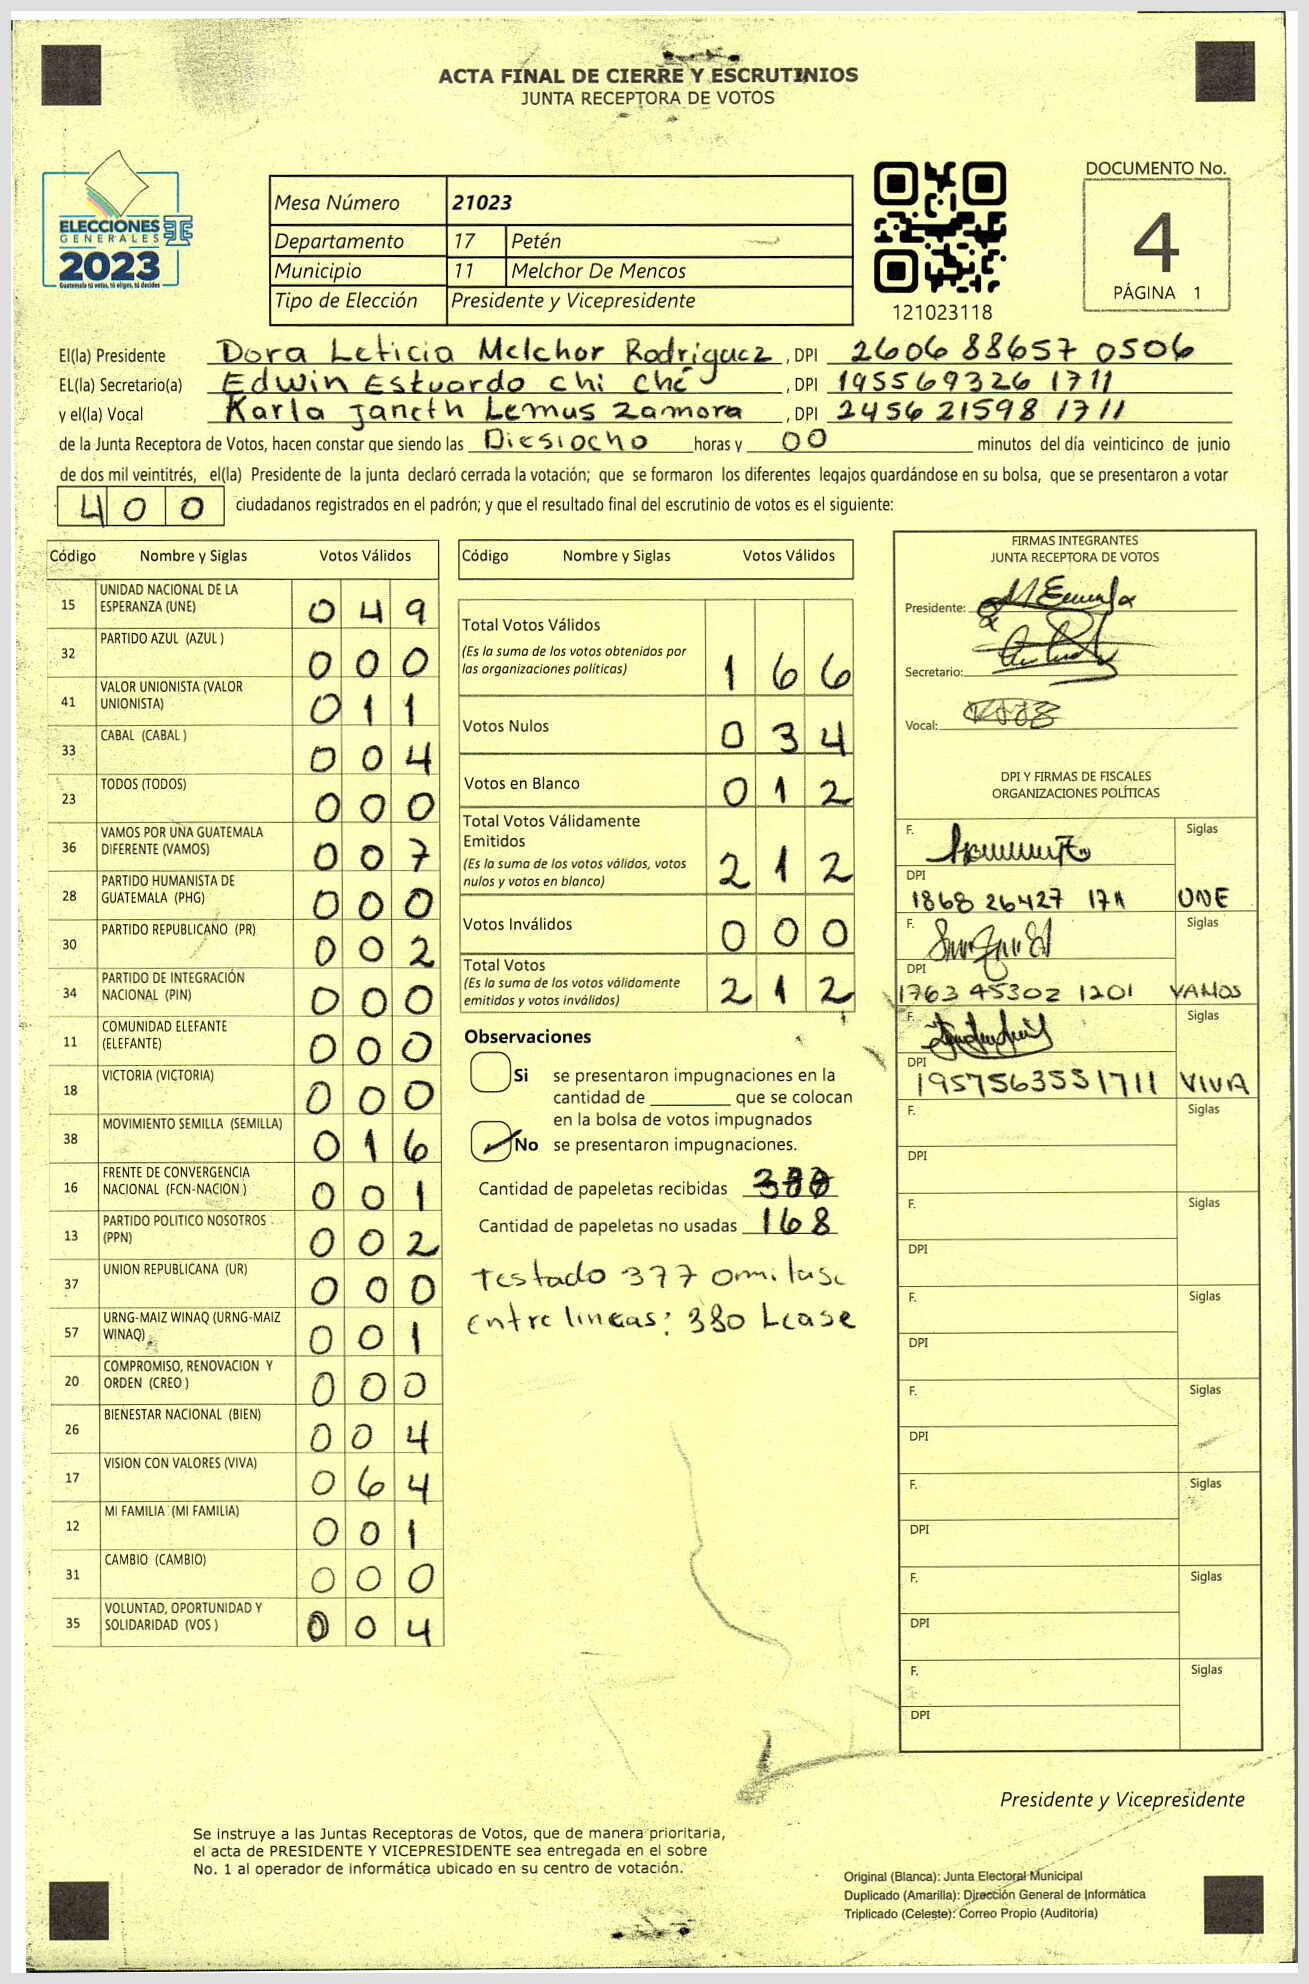 ACTA FINAL DE CIERRE Y ESCRUTINIOS
JUNTA RECEPTORA DE VOTOS
ELECCIONES
GENERALES
2023
Guatemala tú votas, tú eliges, tú decides
Mesa Número 21023
Departamento 17 Petén
Municipio 11 Melchor De Mencos
Tipo de Elección Presidente y Vicepresidente
121023118
DOCUMENTO No.
4
PÁGINA 1
El(la) Presidente Dora Leticia Melchor Rodriguez, DPI 2606 88657 0506
EL(la) Secretario(a) Edwin Estuardo Chi Ché, DPI 195569326 1711
y el(la) Vocal Karla Janeth Lemus Zamora, DPI 2456 21598 1711
de la Junta Receptora de Votos, hacen constar que siendo las Diesiocho horas y 00 minutos del día veinticinco de junio
de dos mil veintitrés, el(la) Presidente de la junta declaró cerrada la votación; que se formaron los diferentes legajos guardándose en su bolsa, que se presentaron a votar
400 ciudadanos registrados en el padrón; y que el resultado final del escrutinio de votos es el siguiente:
Código Nombre y Siglas Votos Válidos
15 UNIDAD NACIONAL DE LA ESPERANZA (UNE) 049
32 PARTIDO AZUL (AZUL ) 000
41 VALOR UNIONISTA (VALOR UNIONISTA) 011
33 CABAL (CABAL ) 004
23 TODOS (TODOS) 000
36 VAMOS POR UNA GUATEMALA DIFERENTE (VAMOS) 007
28 PARTIDO HUMANISTA DE GUATEMALA (PHG) 000
30 PARTIDO REPUBLICANO (PR) 002
34 PARTIDO DE INTEGRACIÓN NACIONAL (PIN) 000
11 COMUNIDAD ELEFANTE (ELEFANTE) 000
18 VICTORIA (VICTORIA) 000
38 MOVIMIENTO SEMILLA (SEMILLA) 016
16 FRENTE DE CONVERGENCIA NACIONAL (FCN-NACION ) 001
13 PARTIDO POLITICO NOSOTROS (PPN) 002
37 UNION REPUBLICANA (UR) 000
57 URNG-MAIZ WINAQ (URNG-MAIZ WINAQ) 001
20 COMPROMISO, RENOVACION Y ORDEN (CREO ) 000
26 BIENESTAR NACIONAL (BIEN) 004
17 VISION CON VALORES (VIVA) 064
12 MI FAMILIA (MI FAMILIA) 001
31 CAMBIO (CAMBIO) 000
35 VOLUNTAD, OPORTUNIDAD Y SOLIDARIDAD (VOS ) 004
Código Nombre y Siglas Votos Válidos
Total Votos Válidos 166
(Es la suma de los votos obtenidos por
las organizaciones políticas)
Votos Nulos 034
Votos en Blanco 012
Total Votos Válidamente
Emitidos 212
(Es la suma de los votos válidos, votos
nulos y votos en blanco)
Votos Inválidos 000
Total Votos 212
(Es la suma de los votos válidamente
emitidos y votos inválidos)
Observaciones
Si se presentaron impugnaciones en la
cantidad de ________ que se colocan
en la bolsa de votos impugnados
No se presentaron impugnaciones.
Cantidad de papeletas recibidas
Cantidad de papeletas no usadas 168
Testado 377 Omitase
Entre lineas: 380 Lease
FIRMAS INTEGRANTES
JUNTA RECEPTORA DE VOTOS
Presidente:
Secretario:
Vocal:
DPI Y FIRMAS DE FISCALES
ORGANIZACIONES POLÍTICAS
F. Siglas
DPI
1868 26427 1711 UNE
F. Siglas
DPI
1763 45302 1201 VAMOS
F. Siglas
DPI
1957563551711 VIVA
F. Siglas
DPI
F. Siglas
DPI
F. Siglas
DPI
F. Siglas
DPI
F. Siglas
DPI
F. Siglas
DPI
F. Siglas
DPI
Presidente y Vicepresidente
Se instruye a las Juntas Receptoras de Votos, que de manera prioritaria,
el acta de PRESIDENTE Y VICEPRESIDENTE sea entregada en el sobre
No. 1 al operador de informática ubicado en su centro de votación.
Original (Blanca): Junta Electoral Municipal
Duplicado (Amarilla): Dirección General de Informática
Triplicado (Celeste): Correo Propio (Auditoría)